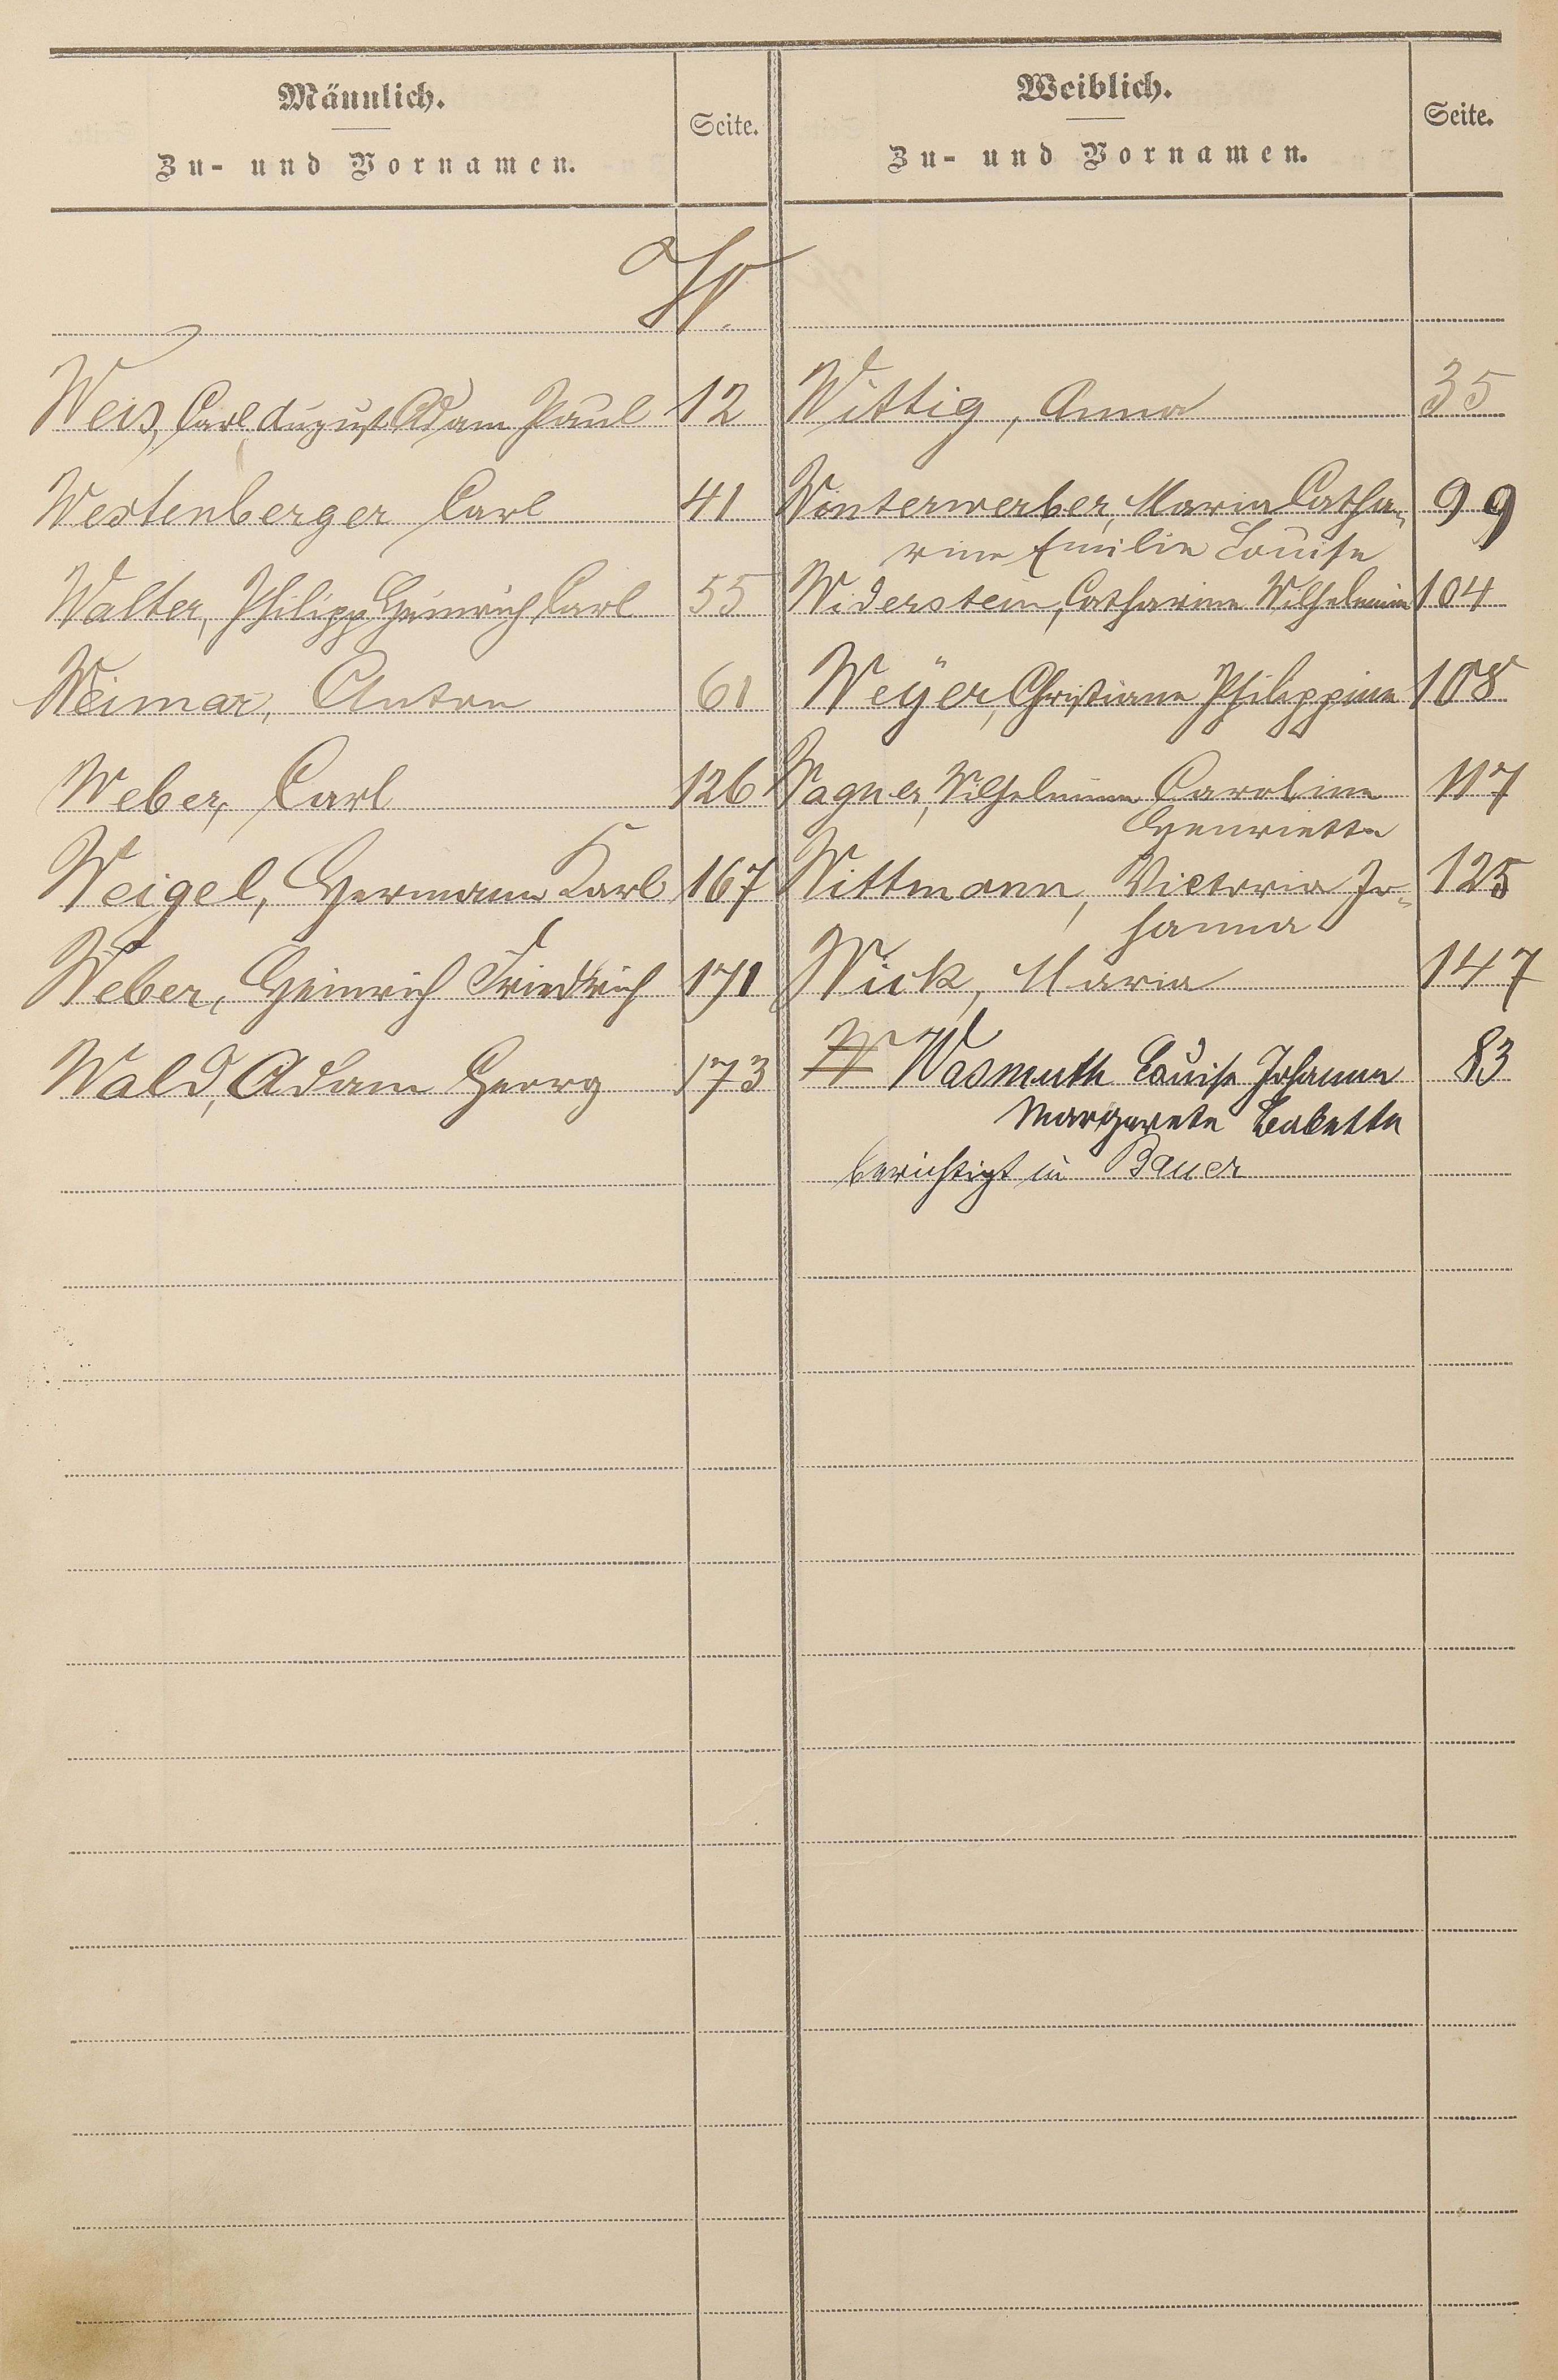 Männlich.
Zu- und Vornamen.
Seite.
Weiblich.
Zu- und Vornamen.
Seite.
W.
Weis, Carl August Adam Paul 12
Westenberger Carl 41
Walter, Philipp Heinrich Carl 55
Weimar, Anton 61
Weber, Carl 126
Weigel, Hermann Karl 167
Weber, Heinrich Friedrich 171
Wald, Adam Georg 173
Wittig, Anna 35
Winterwerber, Maria Catha- 99
rine Emilie Louise
Widerstein, Catharine Wilhelmine 104
Weÿer, Christiane Philippine 108
Wagner, Wilhelmine Caroline 117
Henriette
Wittmann, Victoria Jo- 125
hanna
Wick, Maria 147
W Wasmuth Louise Johanna 83
Margarete Babette
berichtigt in Bauer